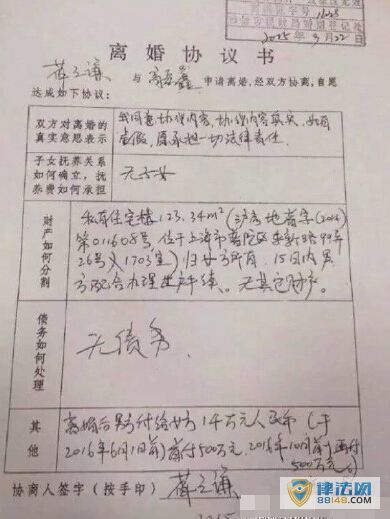 2015年9月22日
离婚协议书
薛之谦 与 高磊鑫 申请离婚,经双方协商,自愿
达成如下协议:
双方对离婚的
真实意思表示
我同意协议内容,协议内容真实,如有
虚假,愿承担一切法律责任.
子女抚养关系
如何确立,抚
养费如何承担
无子女
财产如何分割
私有住宅楼123.34m²(沪房地普字(2014)
第011608号,位于上海市普陀区
26号1703室)归女方所有,15日内男
方配合办理过户手续。无其它财产。
债务如何处理
无债务.
其他
离婚后男方付给女方1千万元人民币(于
2016年6月1日前)首付500万元,2016年10月前再付
500万元
协商人签字(按手印) 薛之谦
2015
律法网
88148.com